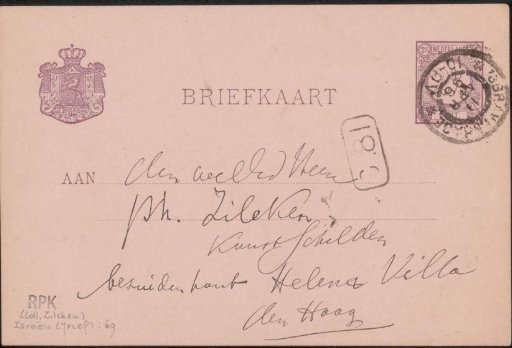 BRIEFKAART
18 S
AAN den weled Heer
Ph. Zilcken
Kunstschilder
bezuidenhout Helena Villa
den Haag
RPK
(Coll. Zilcken)
Israëls (Jozef) : 69